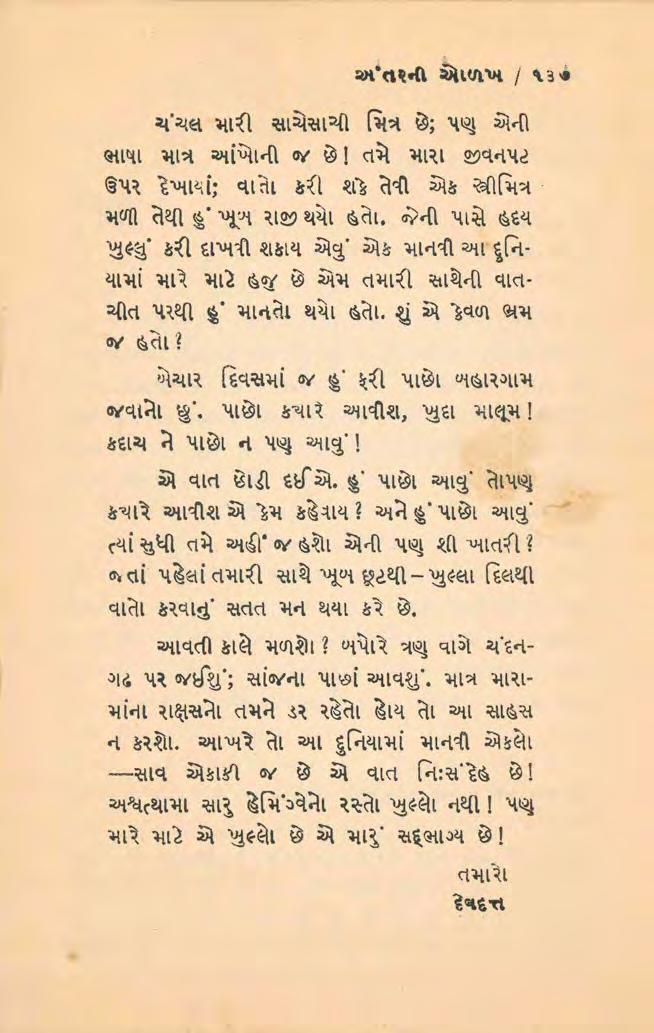 અંતરની ઓળખ / ૧૩૭
ચંચલ મારી સાચેસાચી મિત્ર છે; પણ એની
ભાષા માત્ર આંખોની જ છે! તમે મારા જીવનપટ
ઉપર દેખાયાં; વાતો કરી શકે તેવી એક સ્ત્રીમિત્ર
મળી તેથી હું ખૂબ રાજી થયો હતો. જેની પાસે હૃદય
ખુલ્લું કરી દાખવી શકાય એવું એક માનવી આ દુનિ-
યામાં મારે માટે હજુ છે એમ તમારી સાથેની વાત-
ચીત પરથી હું માનતો થયો હતો. શું એ કેવળ ભ્રમ
જ હતો?
બેચાર દિવસમાં જ હું ફરી પાછો બહારગામ
જવાનો છું. પાછો કયારે આવીશ, ખુદા માલૂમ!
કદાચ ને પાછો ન પણ આવું!
એ વાત છોડી દઈએ. હું પાછો આવું તોપણ
કયારે આવીશ એ કેમ કહેવાય? અને હું પાછો આવું
ત્યાં સુધી તમે અહીં જ હશો એની પણ શી ખાતરી?
જતાં પહેલાં તમારી સાથે ખૂબ છૂટથી – ખુલ્લા દિલથી
વાતો કરવાનું સતત મન થયા કરે છે.
આવતી કાલે મળશો? બપોરે ત્રણ વાગે ચંદન-
ગઢ પર જઈશું; સાંજના પાછાં આવશું. માત્ર મારા-
માંના રાક્ષસનો તમને ડર રહેતો હોય તો આ સાહસ
ન કરશો. આખરે તો આ દુનિયામાં માનવી એકલો
—સાવ એકાકી જ છે એ વાત નિઃસંદેહ છે!
અશ્વત્થામા સારુ હેમિંગ્વેનો રસ્તો ખુલ્લો નથી! પણ
મારે માટે એ ખુલ્લો છે એ મારું સદ્ભાગ્ય છે!
તમારો
દેવદત્ત